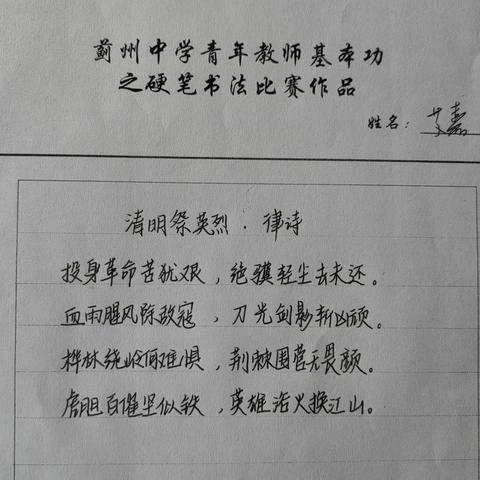 蓟州中学青年教师基本功
之硬笔书法比赛作品
姓名：艾嘉
清明祭英烈·律诗
投身革命苦犹艰，绝骥轻尘去未还。
血雨腥风除敌寇，刀光剑影斩凶顽。
桦林绕岭何难惧，荆棘围营无畏颜。
虎胆百催坚似铁，英雄浩火换江山。